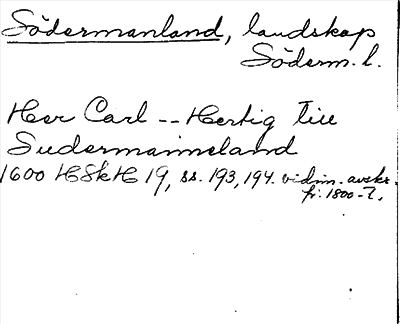 Södermanland, landskap
Söderm. l.
Her Carl -- Hertig till
Sudermanneland
1600 HSkH 19, ss. 193, 194. vidim. avskr.
fr. 1800-t.